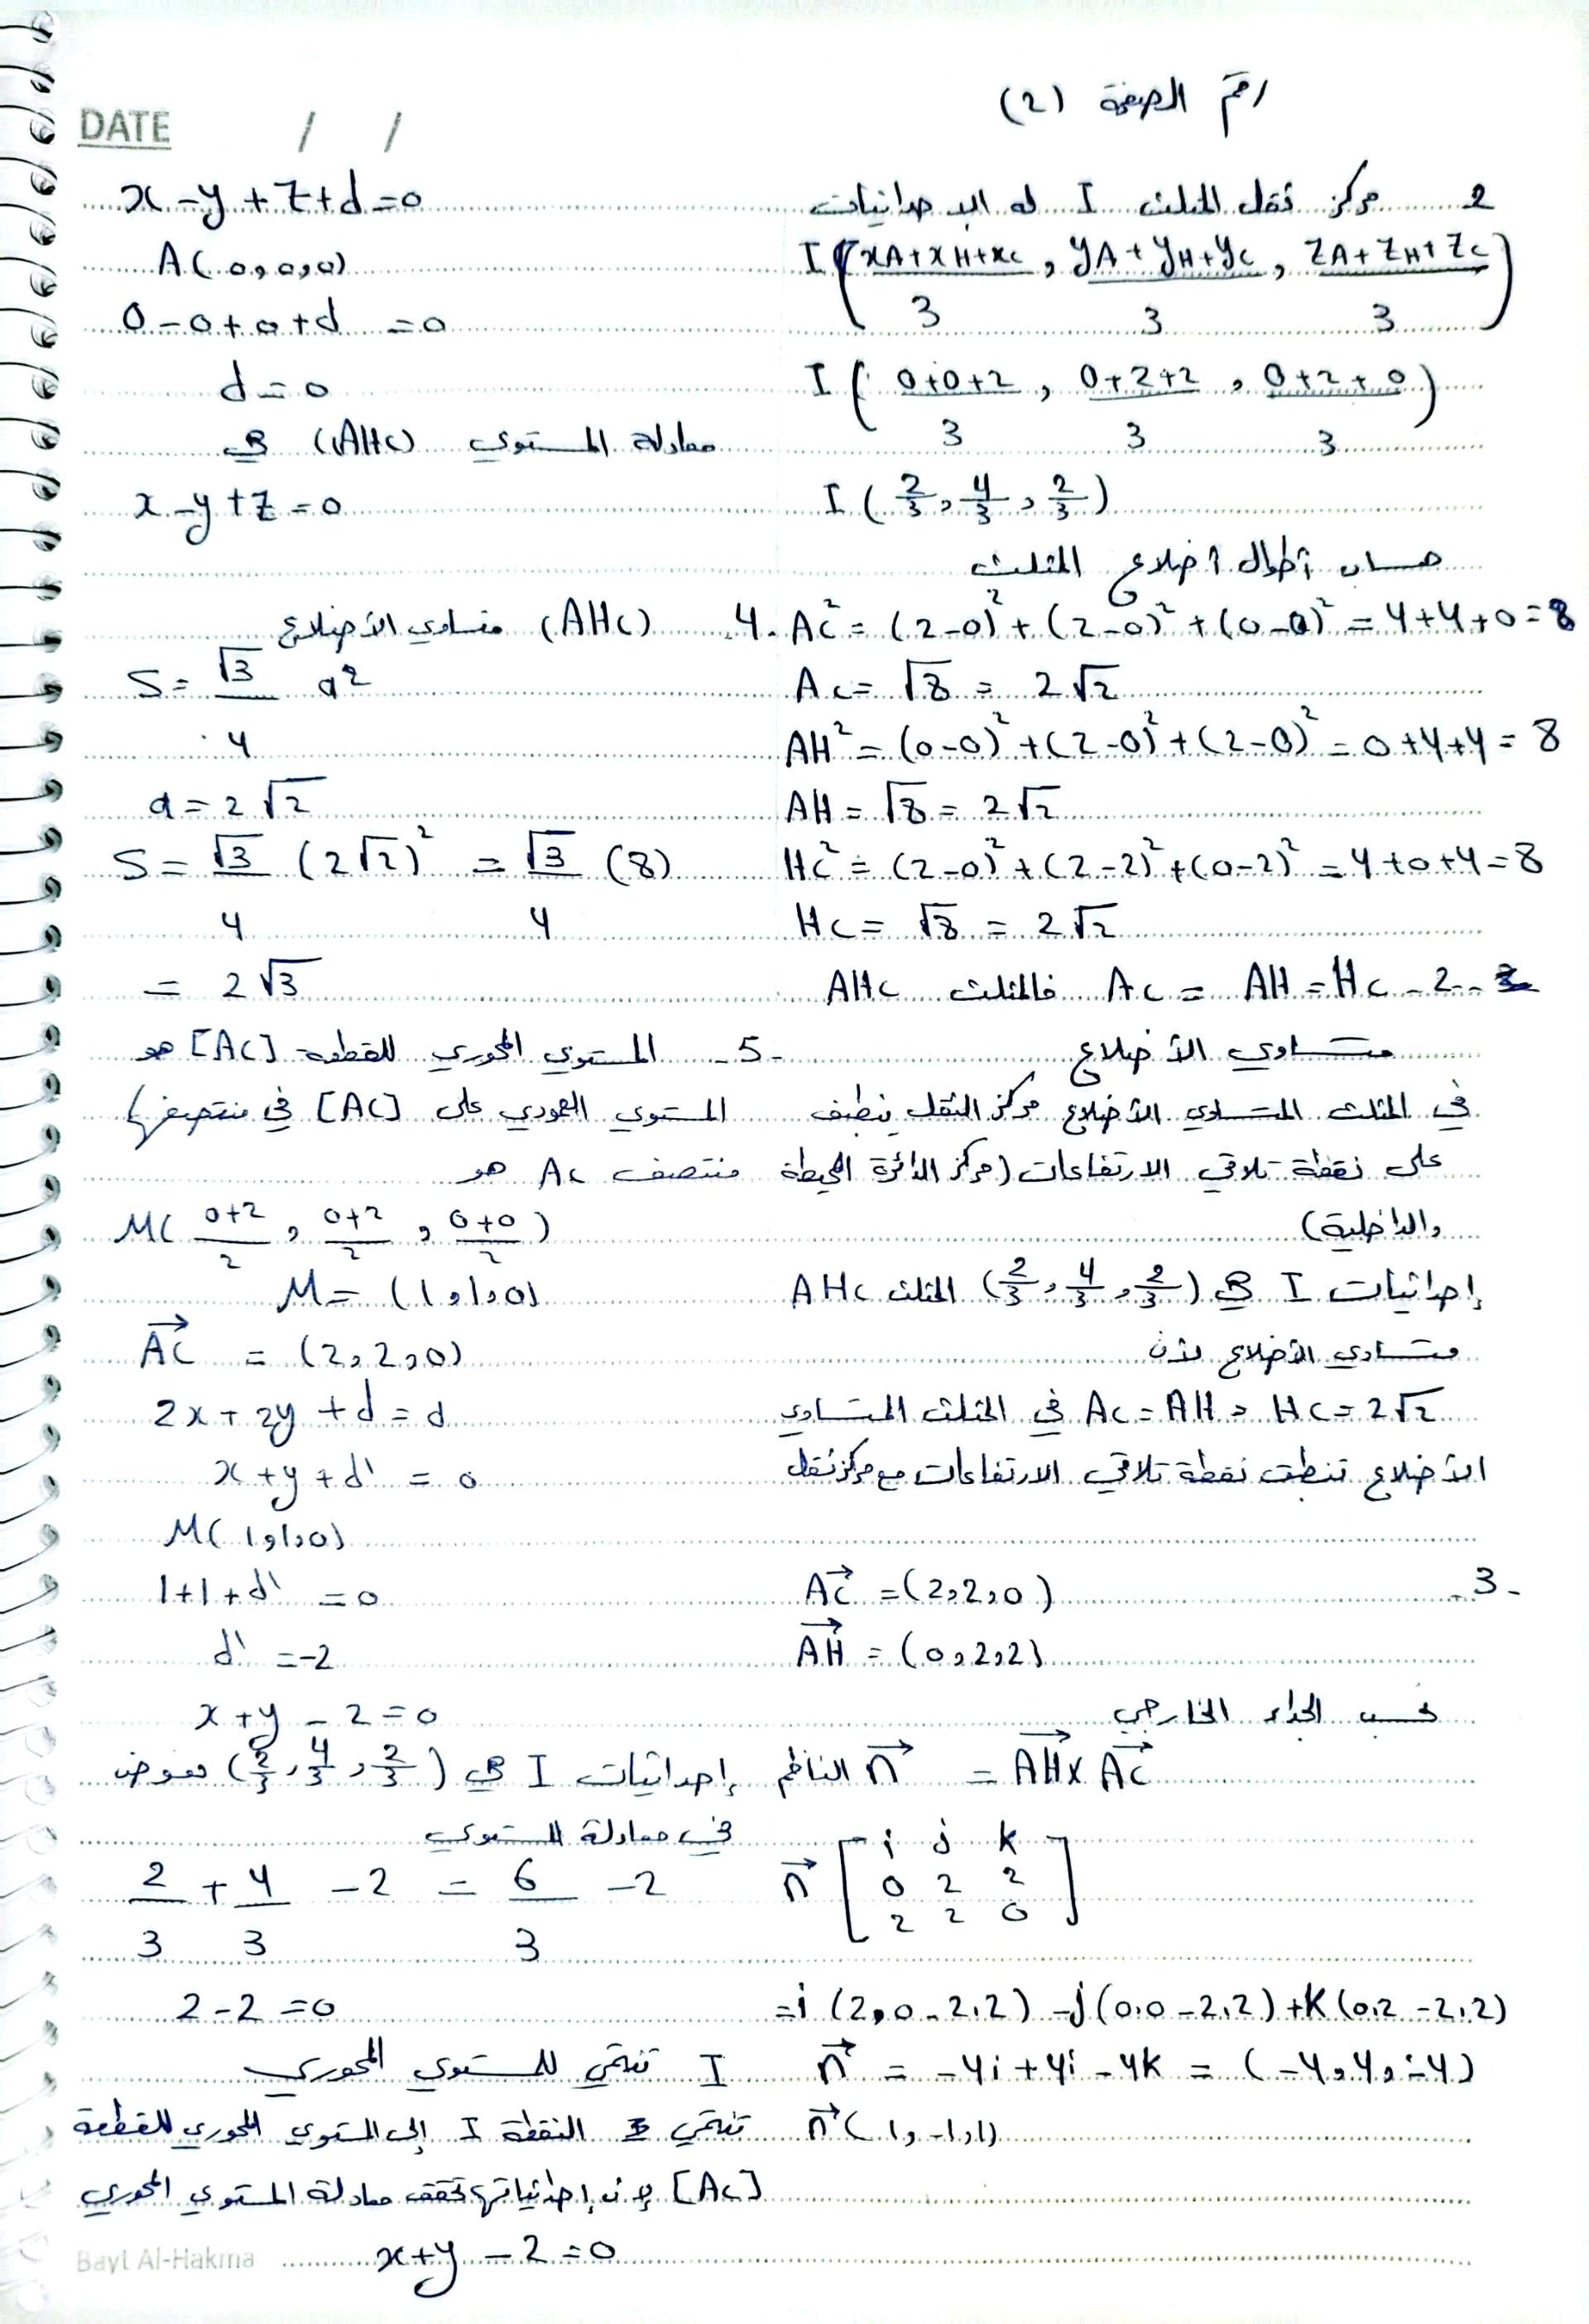 رقم الصفحة (2)
DATE / /
2 مركز ثقل المثلث I له الإحداثيات
I ( xA+xH+xc / 3 , yA+yH+yc / 3 , zA+zH+zc / 3 )
I ( 0+0+2 / 3 , 0+2+2 / 3 , 0+2+0 / 3 )
I ( 2/3 , 4/3 , 2/3 )
حساب أطوال أضلاع المثلث
AC² = (2-0)² + (2-0)² + (0-0)² = 4+4+0 = 8
AC = √8 = 2√2
AH² = (0-0)² + (2-0)² + (2-0)² = 0+4+4 = 8
AH = √8 = 2√2
HC² = (2-0)² + (2-2)² + (0-2)² = 4+0+4 = 8
HC = √8 = 2√2
2- AC = AH = HC فالمثلث AHC
متساوي الأضلاع
في المثلث المتساوي الأضلاع مركز الثقل ينطبق
على نقطة تلاقي الارتفاعات (مركز الدائرة المحيطة
والداخلية)
إحداثيات I هي (2/3 , 4/3 , 2/3) المثلث AHC
متساوي الأضلاع لأن
AC = AH = HC = 2√2 في المثلث المتساوي
الأضلاع تنطبق نقطة تلاقي الارتفاعات مع مركز ثقل
3- AC = (2,2,0)
AH = (0,2,2)
نحسب الجداء الخارجي
الناظم n = AH x AC
n [ i j k
0 2 2
2 2 0 ]
= i (2.0 - 2.2) - j (0.0 - 2.2) + k (0.2 - 2.2)
n = -4i + 4j - 4k = (-4, 4, -4)
n (1, -1, 1)
x - y + z + d = 0
A (0,0,0)
0 - 0 + 0 + d = 0
d = 0
معادلة المستوي (AHC) هي
x - y + z = 0
4- (AHC) متساوي الأضلاع
S = √3 / 4 a²
a = 2√2
S = √3 / 4 (2√2)² = √3 / 4 (8)
= 2√3
5- المستوي المحوري للقطعة [AC] هو
المستوي العمودي على [AC] في منتصفها
منتصف AC هو
M( 0+2 / 2 , 0+2 / 2 , 0+0 / 2 )
M = (1,1,0)
AC = (2,2,0)
2x + 2y + d = d
x + y + d' = 0
M(1,1,0)
1+1+d' = 0
d' = -2
x + y - 2 = 0
إحداثيات I هي (2/3 , 4/3 , 2/3) نعوض
في معادلة المستوي
2/3 + 4/3 - 2 = 6/3 - 2
2 - 2 = 0
I تنتمي للمستوي المحوري
تنتمي النقطة I إلى المستوي المحوري للقطعة
[AC] لأن إحداثياتها تحقق معادلة المستوي المحوري
x + y - 2 = 0
Bayt Al-Hakma